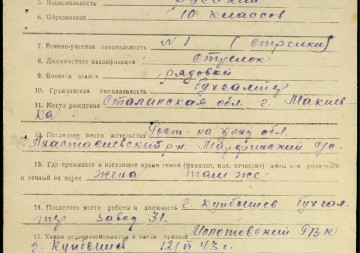 5. Национальность Русский
6. Образование 10 классов
7. Военно-учетная специальность №1 (Стрелки)
8. Должностная квалификация Стрелок
9. Военное звание рядовой
10. Гражданская специальность Бухгалтер
11. Место рождения Сталинская обл. г. Макиев
ка
12. Последнее место жительства Рост. на дону обл.
Анастасиевский рн. Марфинский с/с.
13. Где проживает в настоящее время семья (фамилия, имя, отчество) жены или родителей
и точный их адрес жена там же
14. Последнее место работы и должность г. Куйбышев бухгал
тер завод 31.
15. Каким райвоенкоматом и когда призван РВК
г. Куйбышев 43 г.